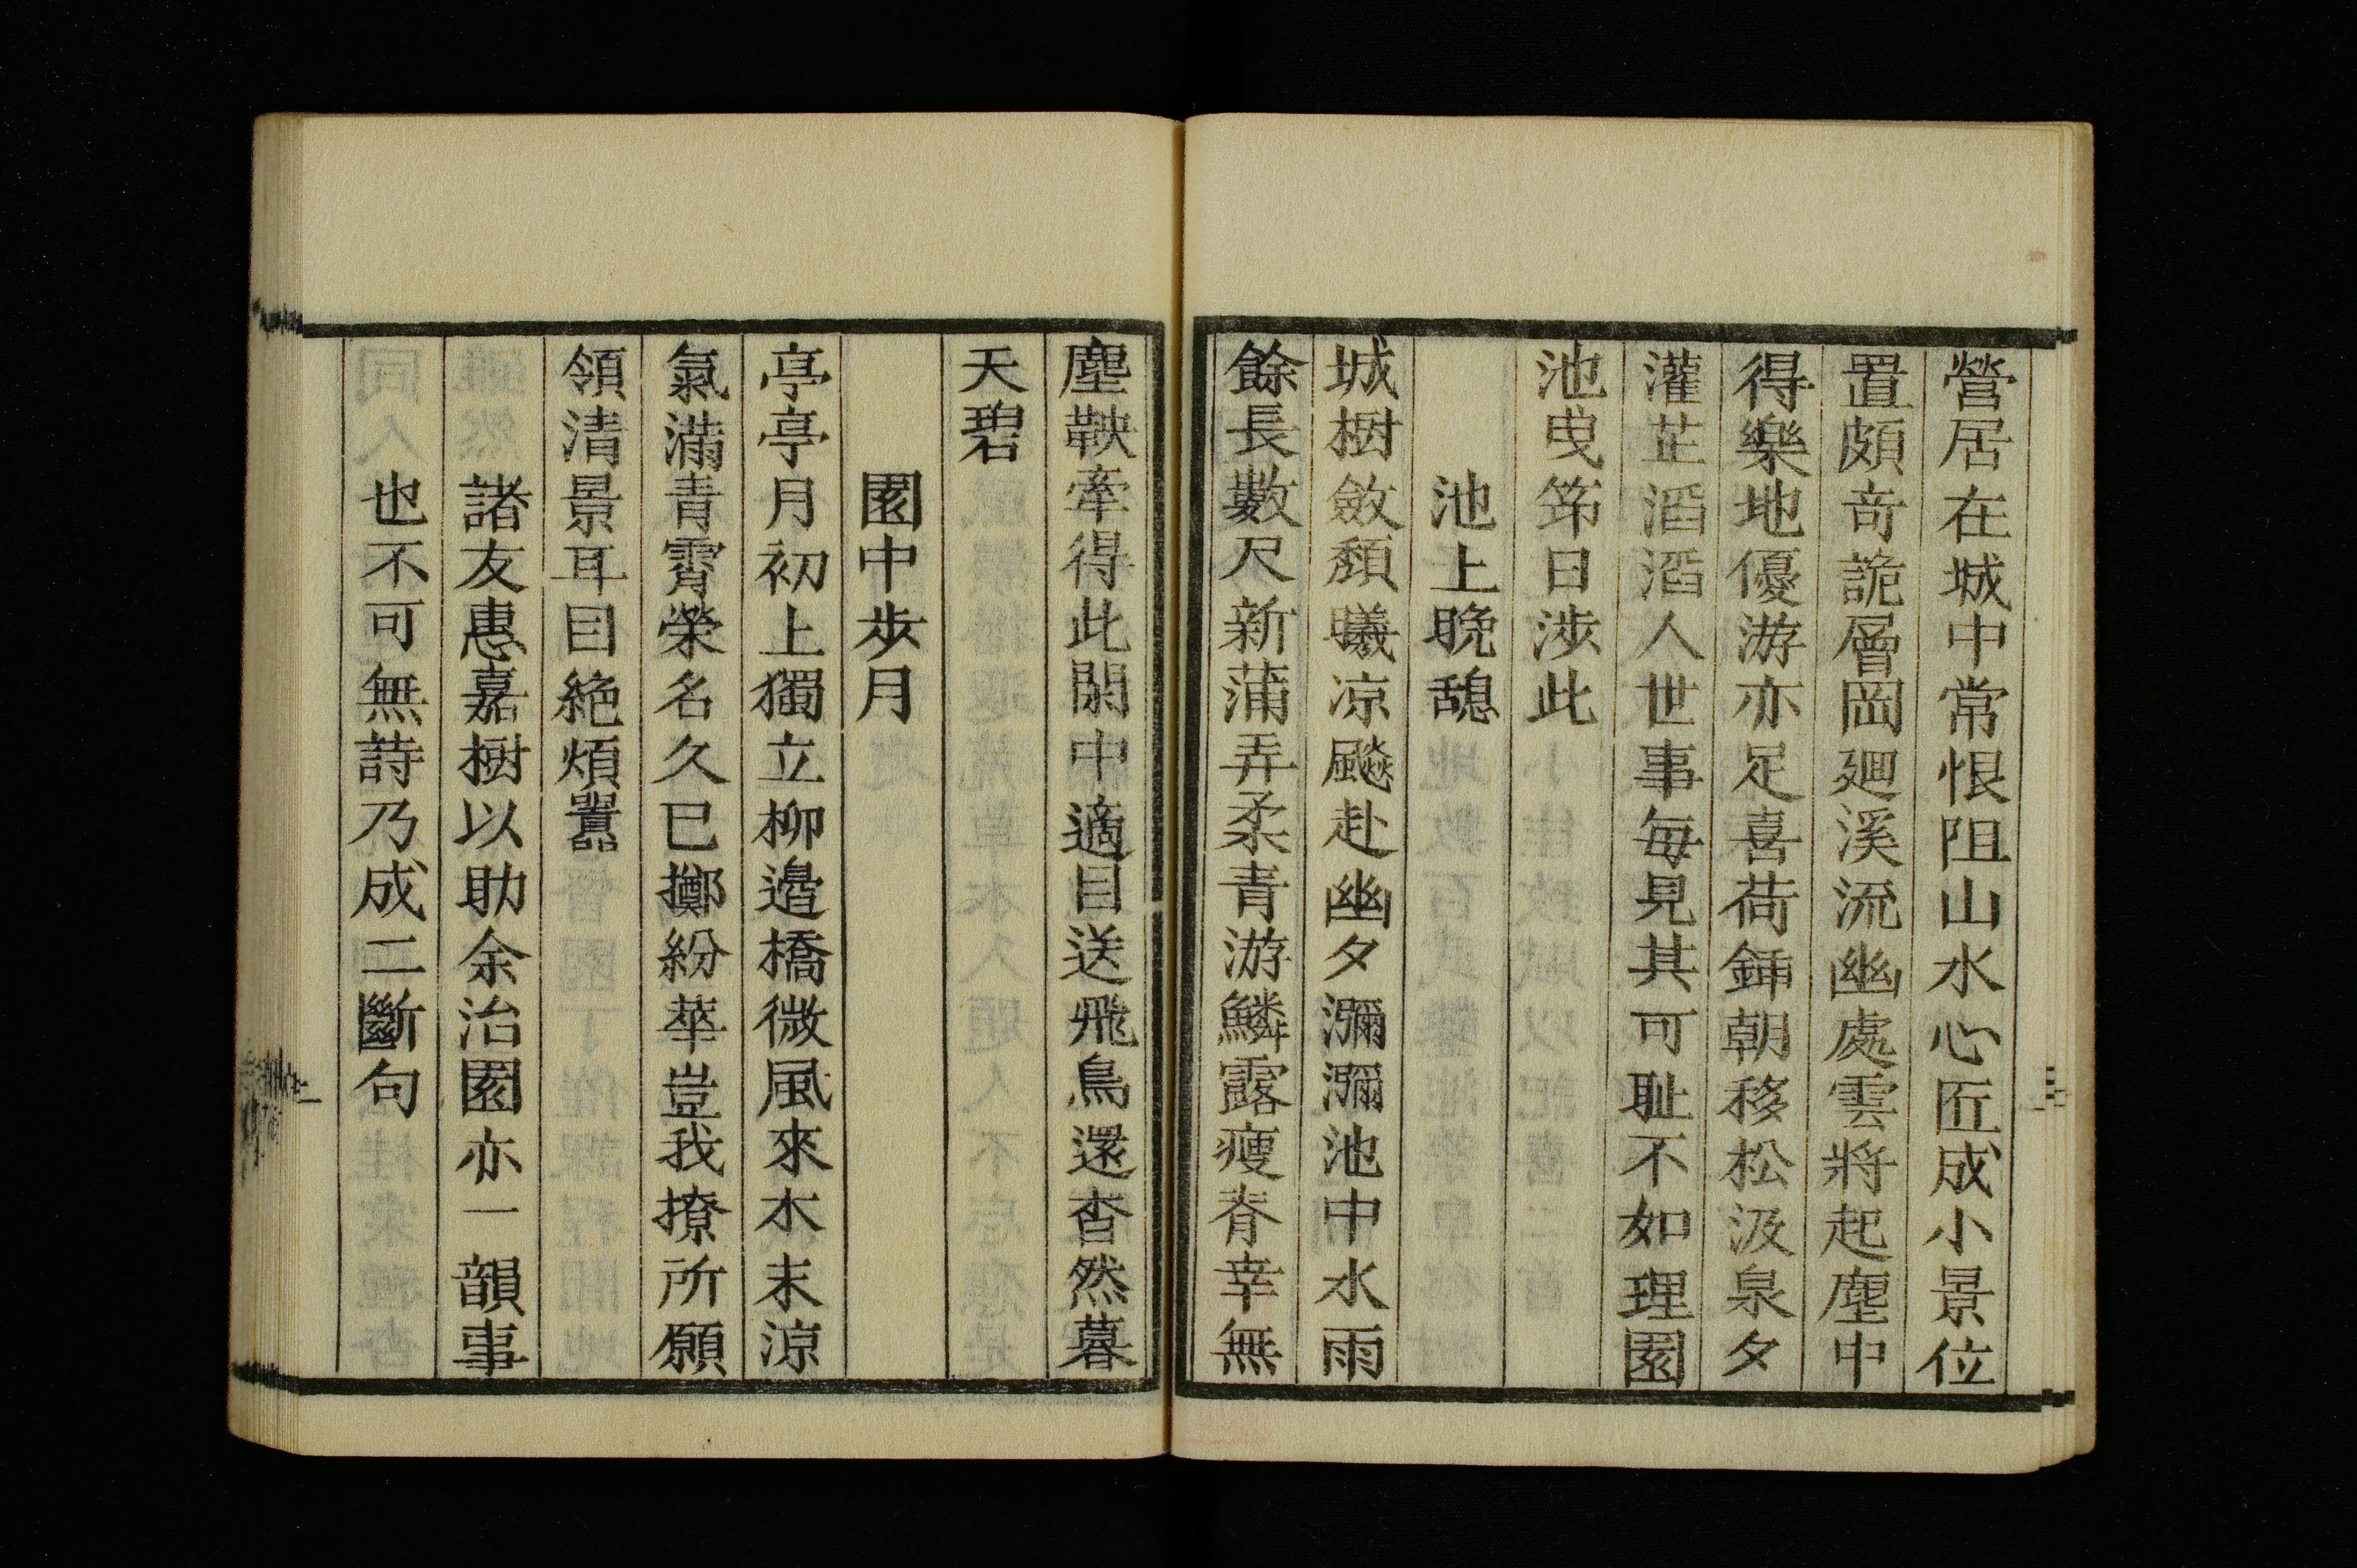 營居在城中常恨阻山水心匠成小景位
置頗竒詭層岡廻溪流幽處雲將起塵中
得樂地優游亦足喜荷鍤朝移松汲泉夕
灌芷滔滔人世事每見其可耻不如理園
池曳筇日涉此
池上晚憩
城樹斂頹曦凉飈赴幽夕瀰瀰池中水雨
餘長數尺新蒲弄柔青游鱗露瘦脊幸無
塵鞅牽得此閑中適目送飛鳥還杳然暮
天碧
園中步月
亭亭月初上獨立柳邉橋微風來木末涼
氣滿青霄榮名久已擲紛華豈我撩所願
領清景耳目絶煩囂
諸友惠嘉樹以助余治園亦一韻事
也不可無詩乃成二斷句